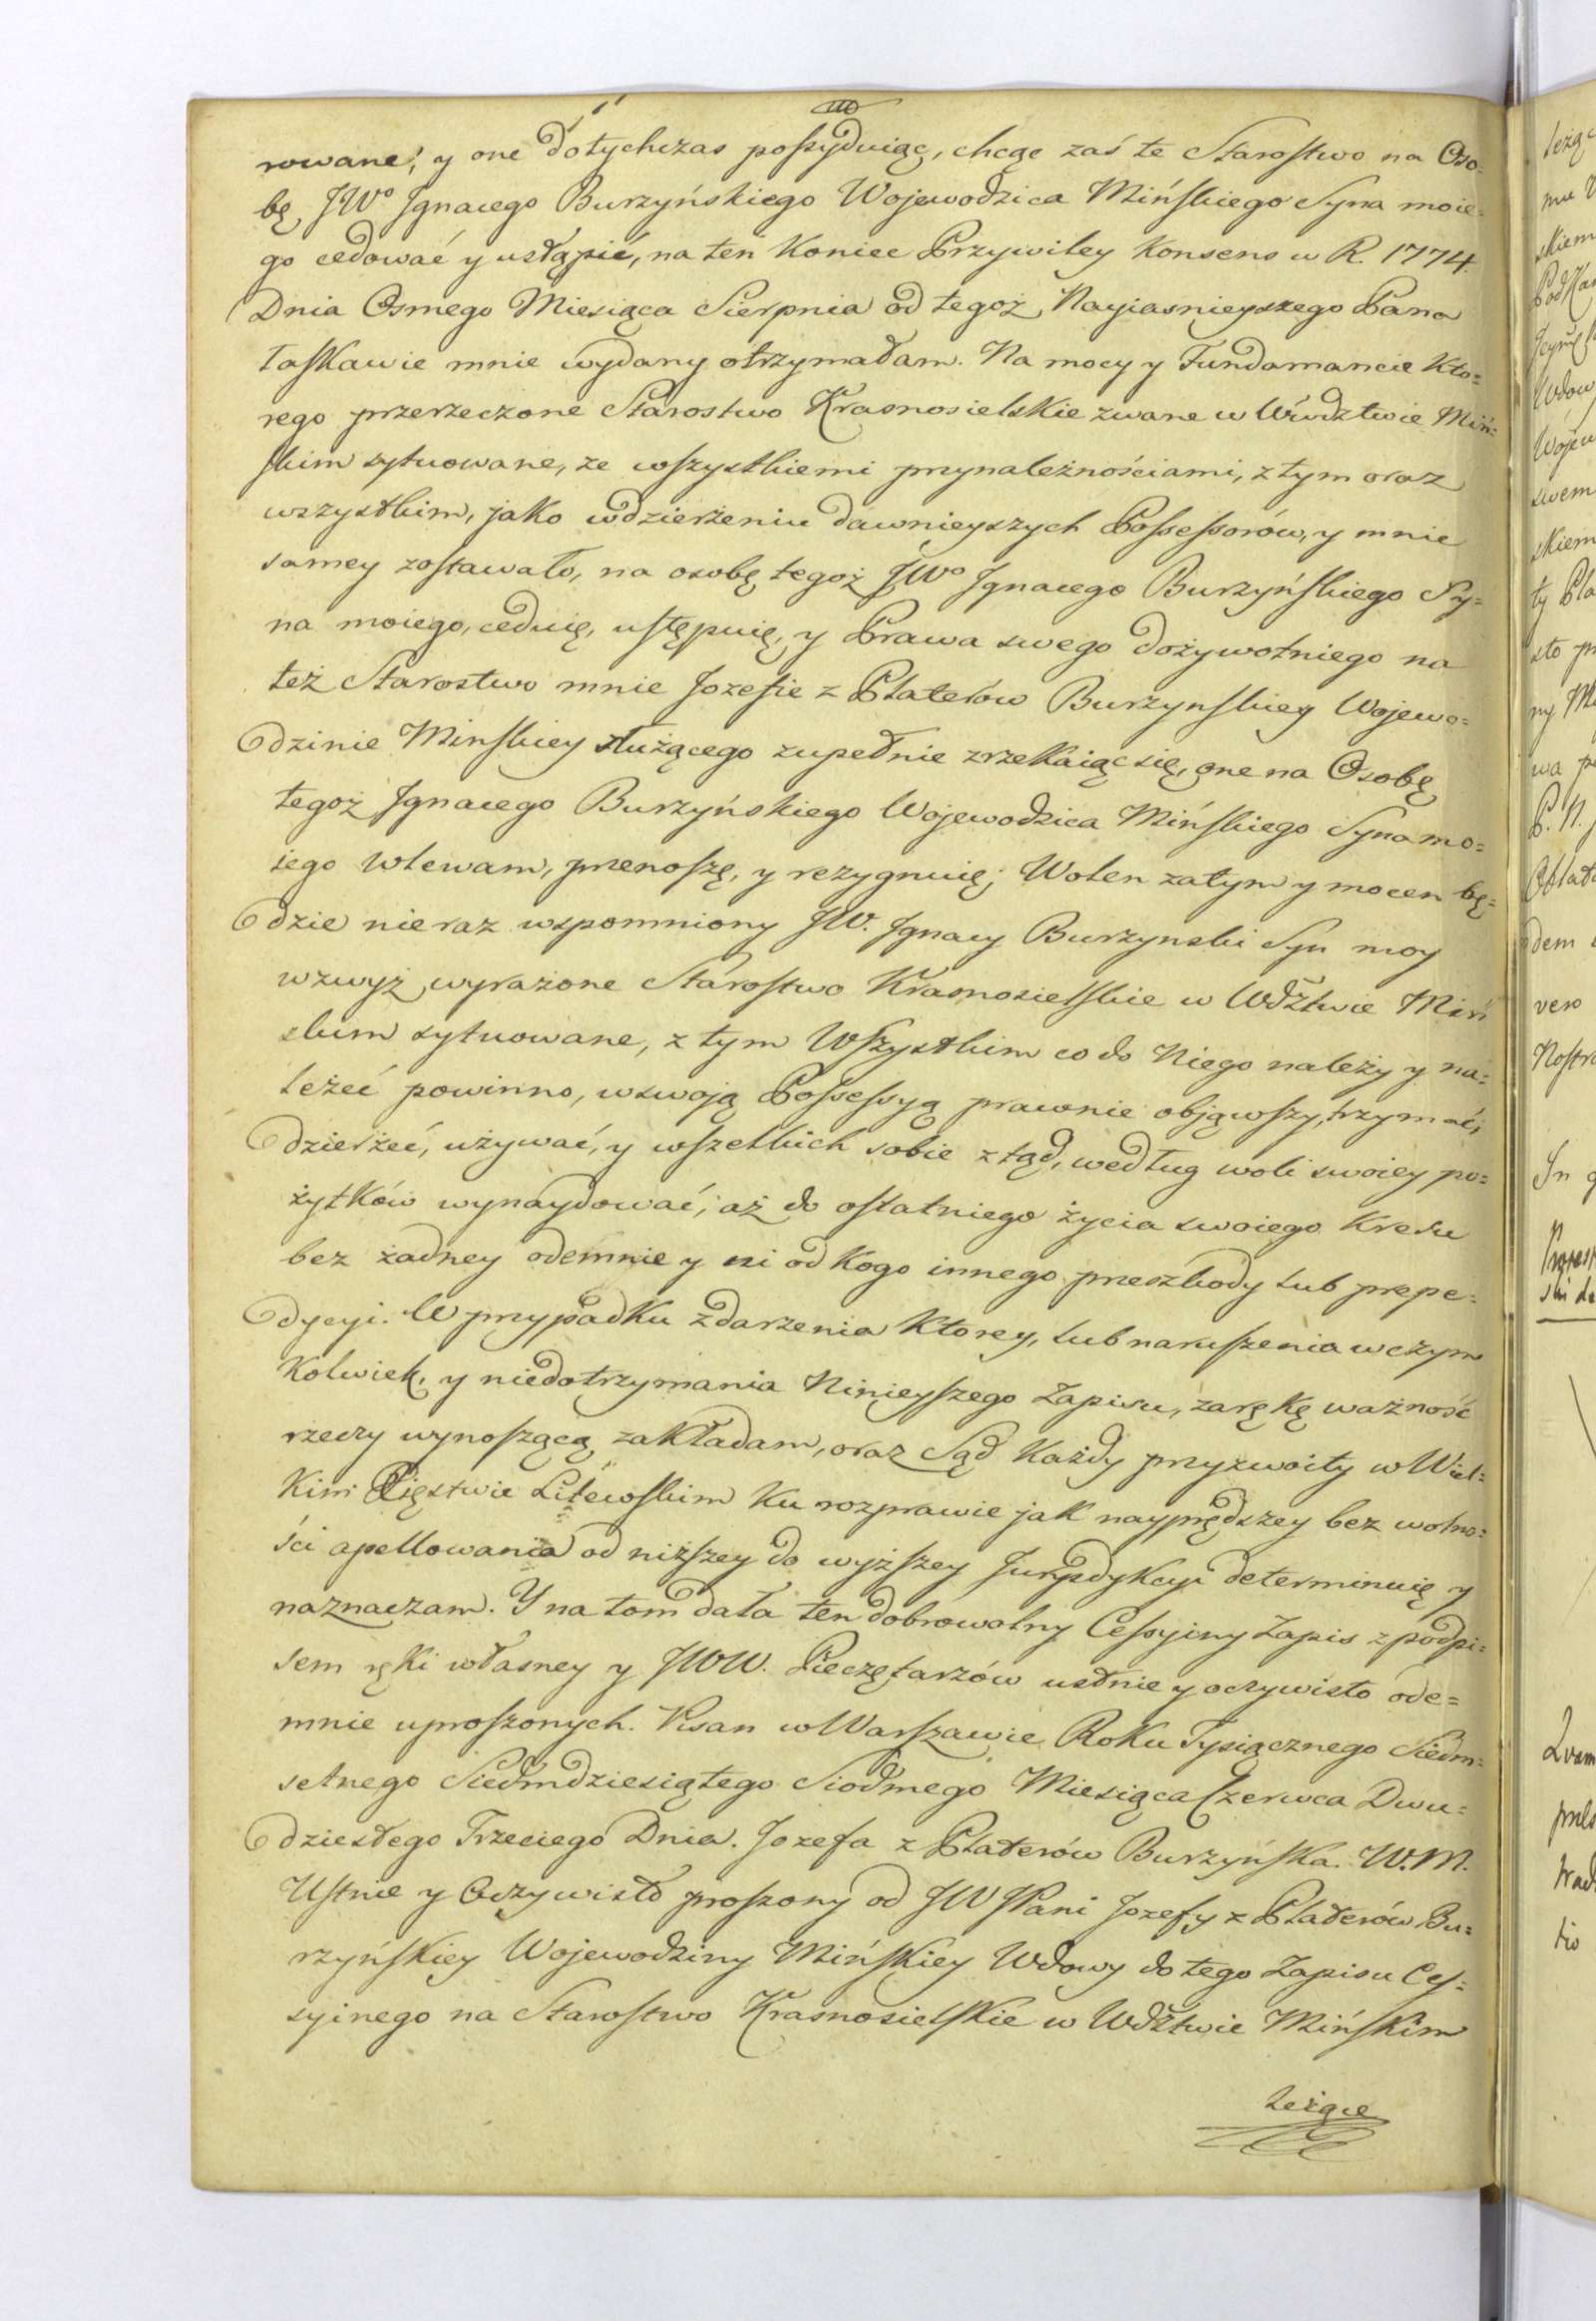 rowane, y one dotychczas possyduiąc, chcąc zaś te Starostwo na Oso=
bę JWo Jgnacego Burzyńskiego Wojewodzica Mińskiego Syna moie=
go cedować y ustąpić, na ten Koniec Przywiley Konsens w R. 1774.
Dnia Osmego Miesiąca Sierpnia od tegoż Nayiasnieyszego Pana
łaskawie mnie wydany otrzymałam. Na mocy y Fundamancie Kto=
rego przerzeczone Starostwo Krasnosielskie zwane w Wwdztwie Miń=
skim sytuowane, ze wszystkiemi przynależnościami, z tym oraz
wszystkim, jako w dzierżeniu dawnieyszych Possessorów, y mnie
samey zostawało, na osobę tegoż JWo Jgnacego Burzyńskiego Sy=
na moiego, ceduię, ustępuię, y Prawa swego dożywotniego na
też Starostwo mnie Jozefie z Platerow Burzynskiey Wojewo=
dzinie Minskiey służącego zupełnie zrzekaiąc się, one na Osobę
tegoż Jgnacego Burzyńskiego Wojewodzica Mińskiego Syna mo=
iego wlewam, przenoszę, y rezygnuię; Wolen zatym y mocen bę=
dzie nieraz wspomniony JW. Jgnacy Burzynski Syn moy
wzwyż wyrażone Starostwo Krasnosielskie w Wdztwie Miń
skim sytuowane, z tym Wszystkim co do Niego należy y na=
leżeć powinno, w swoją Possessyą prawnie objąwszy, trzymać,
dzierżeć, używać, y wszelkich sobie ztąd, według woli swoiey po=
żytków wynaydować, aż do ostatniego życia swoiego Kresu
bez żadney odemnie y ni od Kogo innego przeszkody lub prepe=
dycyi. W przypadku zdarzenia Ktorey, lub naruszenia w czym
Kolwiek, y niedotrzymania Ninieyszego Zapisu, zarękę ważność
rzeczy wynoszącą zakładam, oraz Sąd Każdy przyzwoity w Wiel=
Kim Xięstwie Litewskim Ku rozprawie jak nayprędszey bez wolno=
ści apellowania od niższey do wyższey Juryzdykcyi determinuię y
naznaczam. Y na tom dała ten dobrowolny Cessyiny Zapis z podpi=
sem ręki własney y JWW. Pieczętarzów ustnie y oczywisto ode=
mnie uproszonych. Pisan w Warszawie Roku Tysiącznego Siedm=
setnego Siedmdziesiątego Siodmego Miesiąca Czerwca Dwu=
dziestego Trzeciego Dnia. Jozefa z Platerów Burzyńska. W. M.
Ustnie y Oczywisto proszony od JW JPani Jozefy z Platerów Bu=
rzyńskiey Wojewodziny Mińskiey Wdowy do tego Zapisu Ces=
syinego na Starostwo Krasnosielskie w Wdztwie Mińskim
leżące